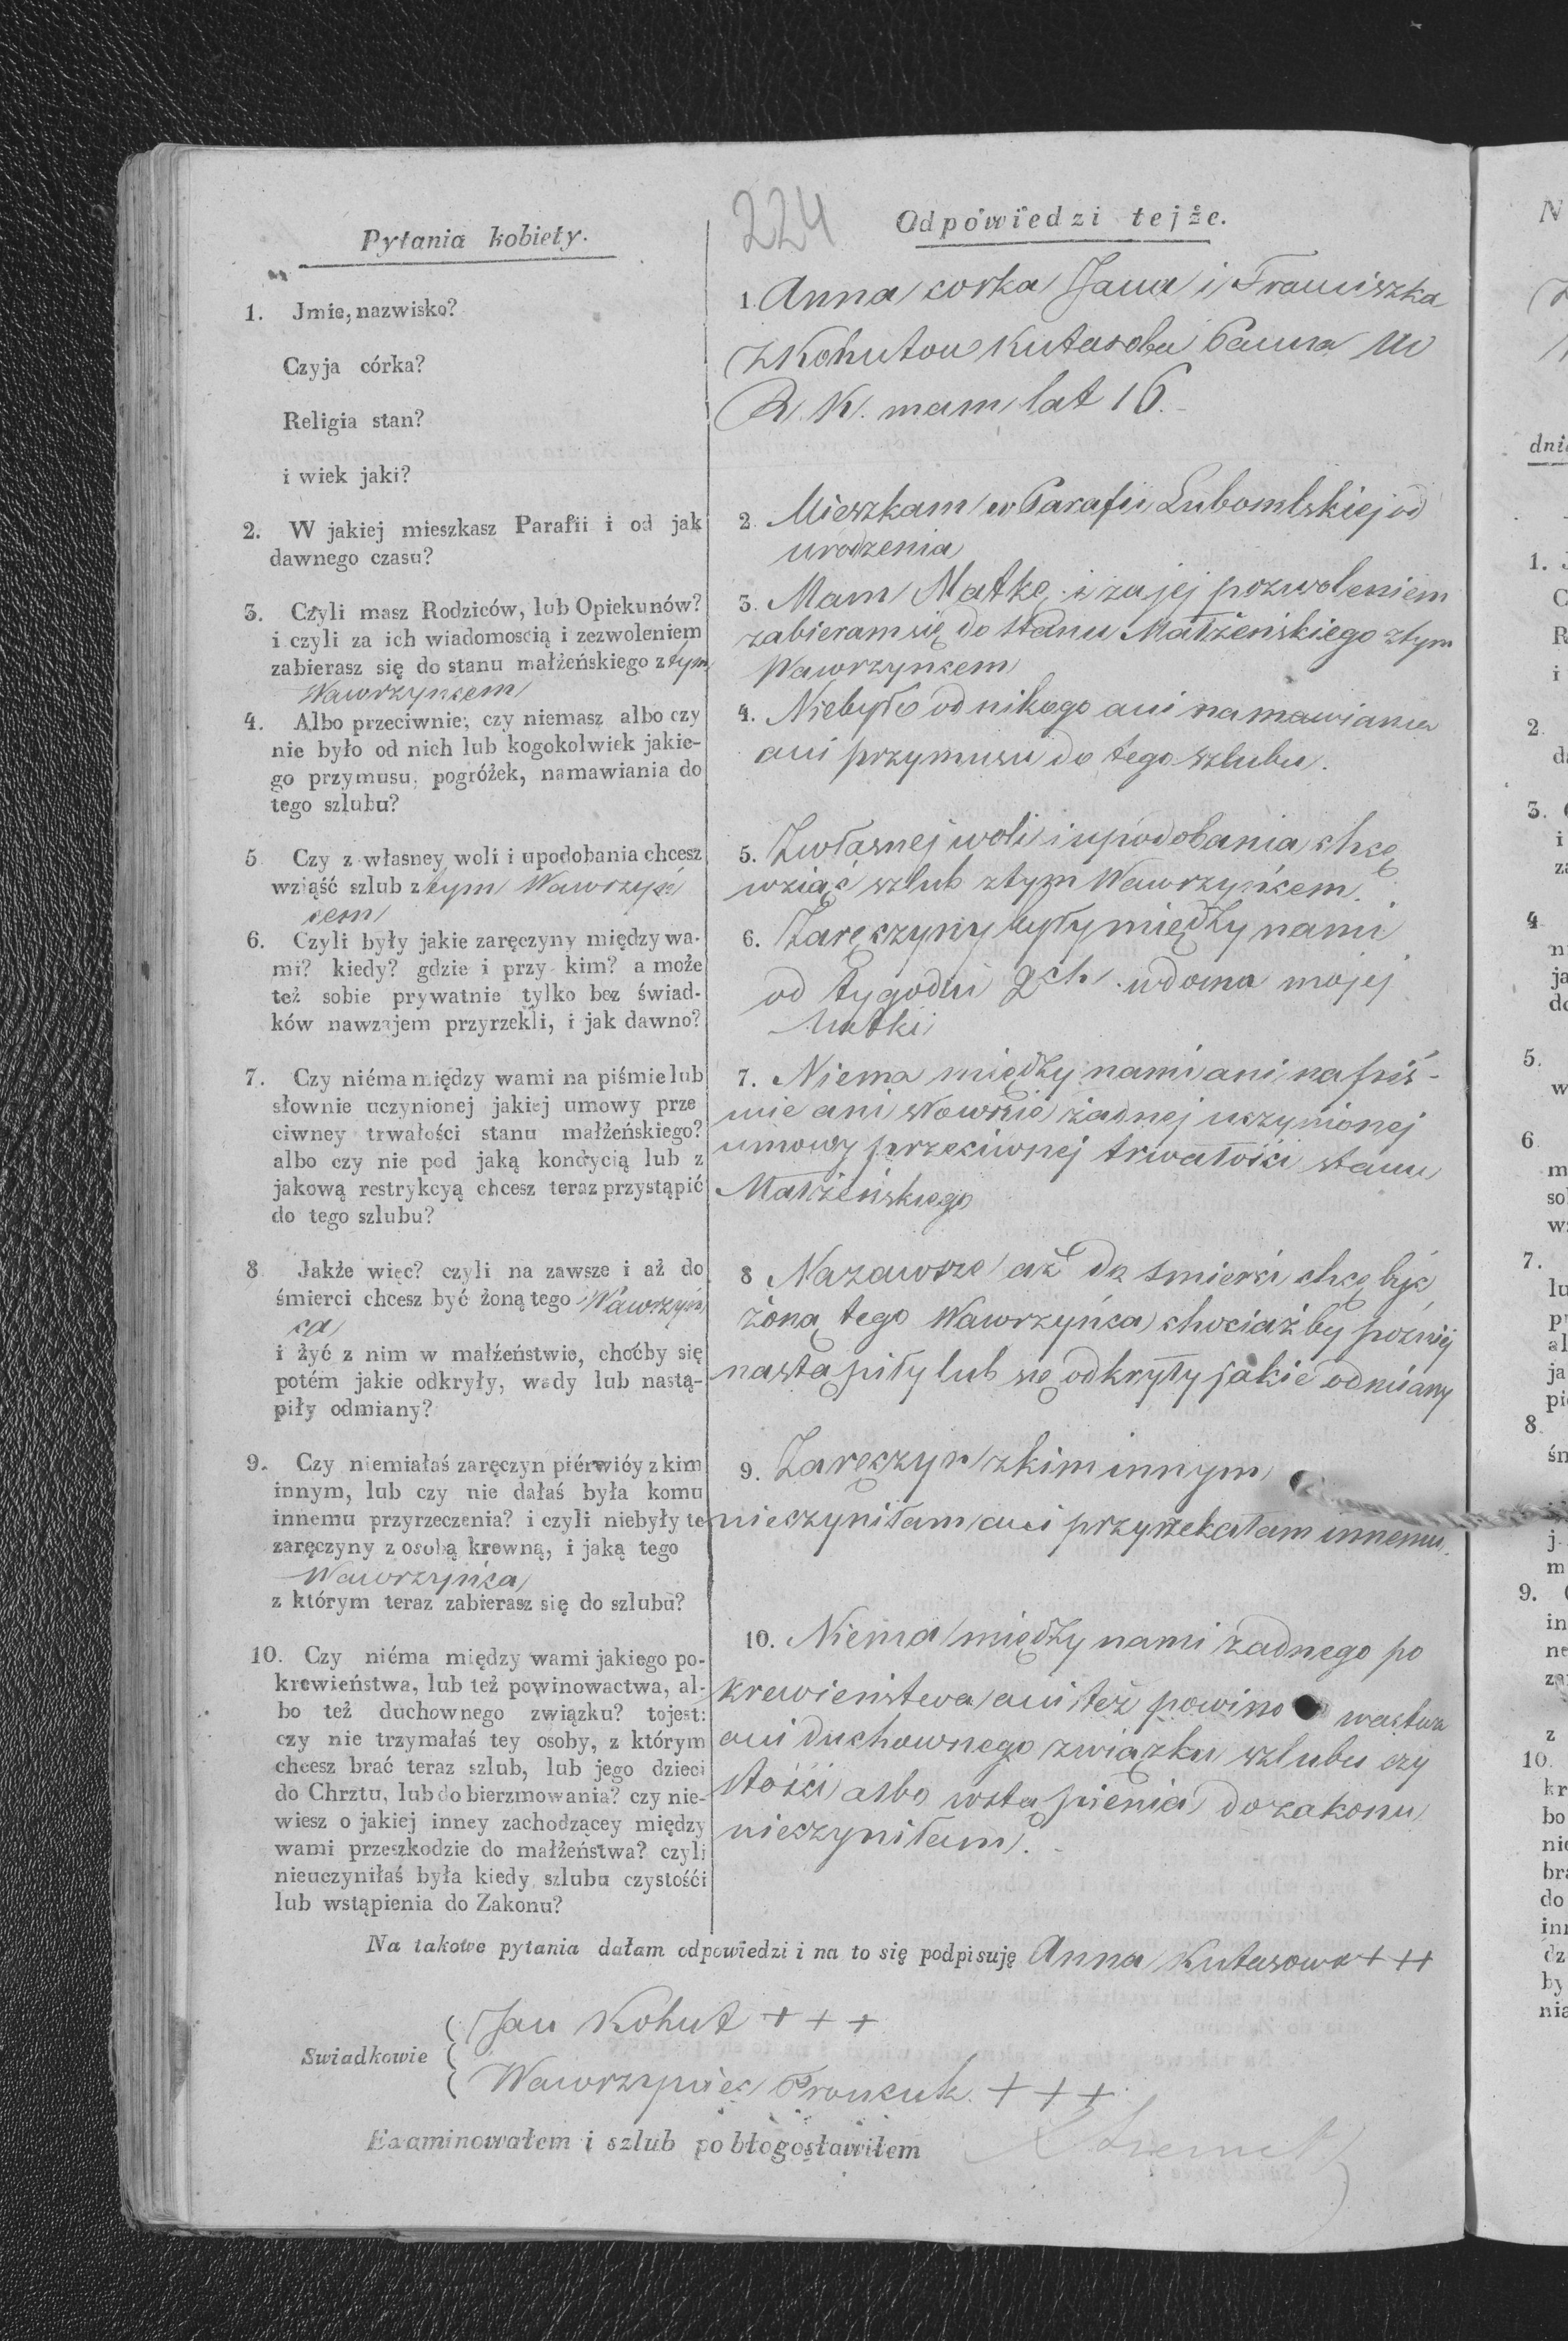 224
Pytania kobiety.
1. Jmie, nazwisko?
Czyja córka?
Religia stan?
i wiek jaki?
2. W jakiej mieszkasz Parafii i od jak
dawnego czasu?
3. Czyli masz Rodziców, lub Opiekunów?
i czyli za ich wiadomoscią i zezwoleniem
zabierasz się do stanu małżeńskiego z tym
Wawrzyncem
4. Albo przeciwnie, czy niemasz albo czy
nie było od nich lub kogokolwiek jakie-
go przymusu, pogróżek, namawiania do
tego szlubu?
5 Czy z własney woli i upodobania chcesz
wziąść szlub z tym Wawrzyń
cem
6. Czyli były jakie zaręczyny między wa-
mi? kiedy? gdzie i przy kim? a może
też sobie prywatnie tylko bez świad-
ków nawzajem przyrzekli, i jak dawno?
7. Czy niéma między wami na piśmie lub
słownie uczynionej jakiej umowy prze
ciwney trwałości stanu małżeńskiego?
albo czy nie pod jaką kondycią lub z
jakową restrykcyą chcesz teraz przystąpić
do tego szlubu?
8 Jakże więc? czyli na zawsze i aż do
śmierci chcesz być żoną tego Wawrzyń
ca
i żyć z nim w małżeństwie, choćby się
potém jakie odkryły, wady lub nastą-
piły odmiany?
9. Czy niemiałaś zaręczyn piérwióy z kim
innym, lub czy nie dałaś była komu
innemu przyrzeczenia? i czyli niebyły te
zaręczyny z osobą krewną, i jaką tego
Wawrzyńca
z którym teraz zabierasz się do szlubu?
10. Czy niéma między wami jakiego po-
krewieństwa, lub też powinowactwa, al-
bo też duchownego związku? tojest:
czy nie trzymałaś tey osoby, z którym
chcesz brać teraz szlub, lub jego dzieci
do Chrztu, lub do bierzmowania? czy nie-
wiesz o jakiej inney zachodzącey między
wami przeszkodzie do małżeństwa? czyli
nieuczyniłaś była kiedy szlubu czystośći
lub wstąpienia do Zakonu?
Odpowiedzi tejże.
1. Anna corka Jana i Franciszka
z Kohutow Kutasoba Panna W
R. K. mam lat 16.
2. Mieszkam w Parafii Lubomlskiej od
urodzenia
3. Mam Matkę i za jej pozwoleniem
zabieram się do stanu Małżeńskiego z tym
Wawrzyncem
4. Niebyło od nikogo ani namawiania
ani przymusu do tego szlubu.
5. Z własnej woli i upodobania chcę
wziąść szlub z tym Wawrzyńcem.
6. Zaręczyny były między nami
od tygodni 2ch u doma mojej
Matki
7. Niema między nami ani na piś-
mie ani słownie żadnej uczynionej
umowy przeciwnej trwałości stanu
Małżeńskiego
8 Nazawsze aż do smierci chcę być
żoną tego Wawrzyńca chociaż by pozniej
nastąpiły lub się odkryły jakie odmiany
9. Zaręczyn z kim innym
nieczyniłam ani przyrzekałam innemu.
10. Niema między nami żadnego po
krewieństwa ani też powino wactwa
ani duchownego związku szlubu czy
stości albo wstąpienia do zakonu
nieczyniłam.
Na takowe pytania dałam odpowiedzi i na to się podpisuję Anna Kutasowa + + +
Swiadkowie
Jan Kohut + + +
Wawrzyniec + + +
Examinowałem i szlub pobłogosławiłem